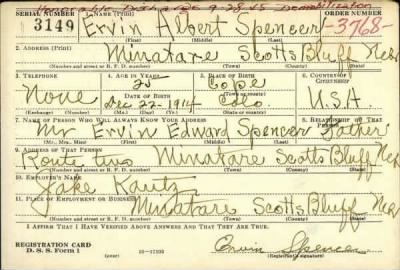 Honorable Discharge 9-28-45 Demobilization
SERIAL NUMBER 1. NAME (Print) ORDER NUMBER
3149 Ervin Albert Spencer -3768-
(First) (Middle) (Last)
2. ADDRESS (Print)
Minatare Scotts Bluff Nebr
(Number and street or R. F. D. number) (Town) (County) (State)
3. TELEPHONE 4. AGE IN YEARS 5. PLACE OF BIRTH 6. COUNTRY OF CITIZENSHIP
None 25 Cope U.S.A.
DATE OF BIRTH (Town or county)
Dec 22-1914 Colo.
(Exchange) (Number) (Mo.) (Day) (Yr.) (State or country)
7. NAME OF PERSON WHO WILL ALWAYS KNOW YOUR ADDRESS 8. RELATIONSHIP OF THAT PERSON
Mr Ervin Edward Spencer Father
(Mr., Mrs., Miss) (First) (Middle) (Last)
9. ADDRESS OF THAT PERSON
Route two Minatare Scotts Bluff Nebr
(Number and street or R. F. D. number) (Town) (County) (State)
10. EMPLOYER'S NAME
Jake Kautz
11. PLACE OF EMPLOYMENT OR BUSINESS
Minatare Scotts Bluff Nebr
(Number and street or R. F. D. number) (Town) (County) (State)
I AFFIRM THAT I HAVE VERIFIED ABOVE ANSWERS AND THAT THEY ARE TRUE.
REGISTRATION CARD
D. S. S. Form 1 Ervin Spencer
(Registrant's signature)